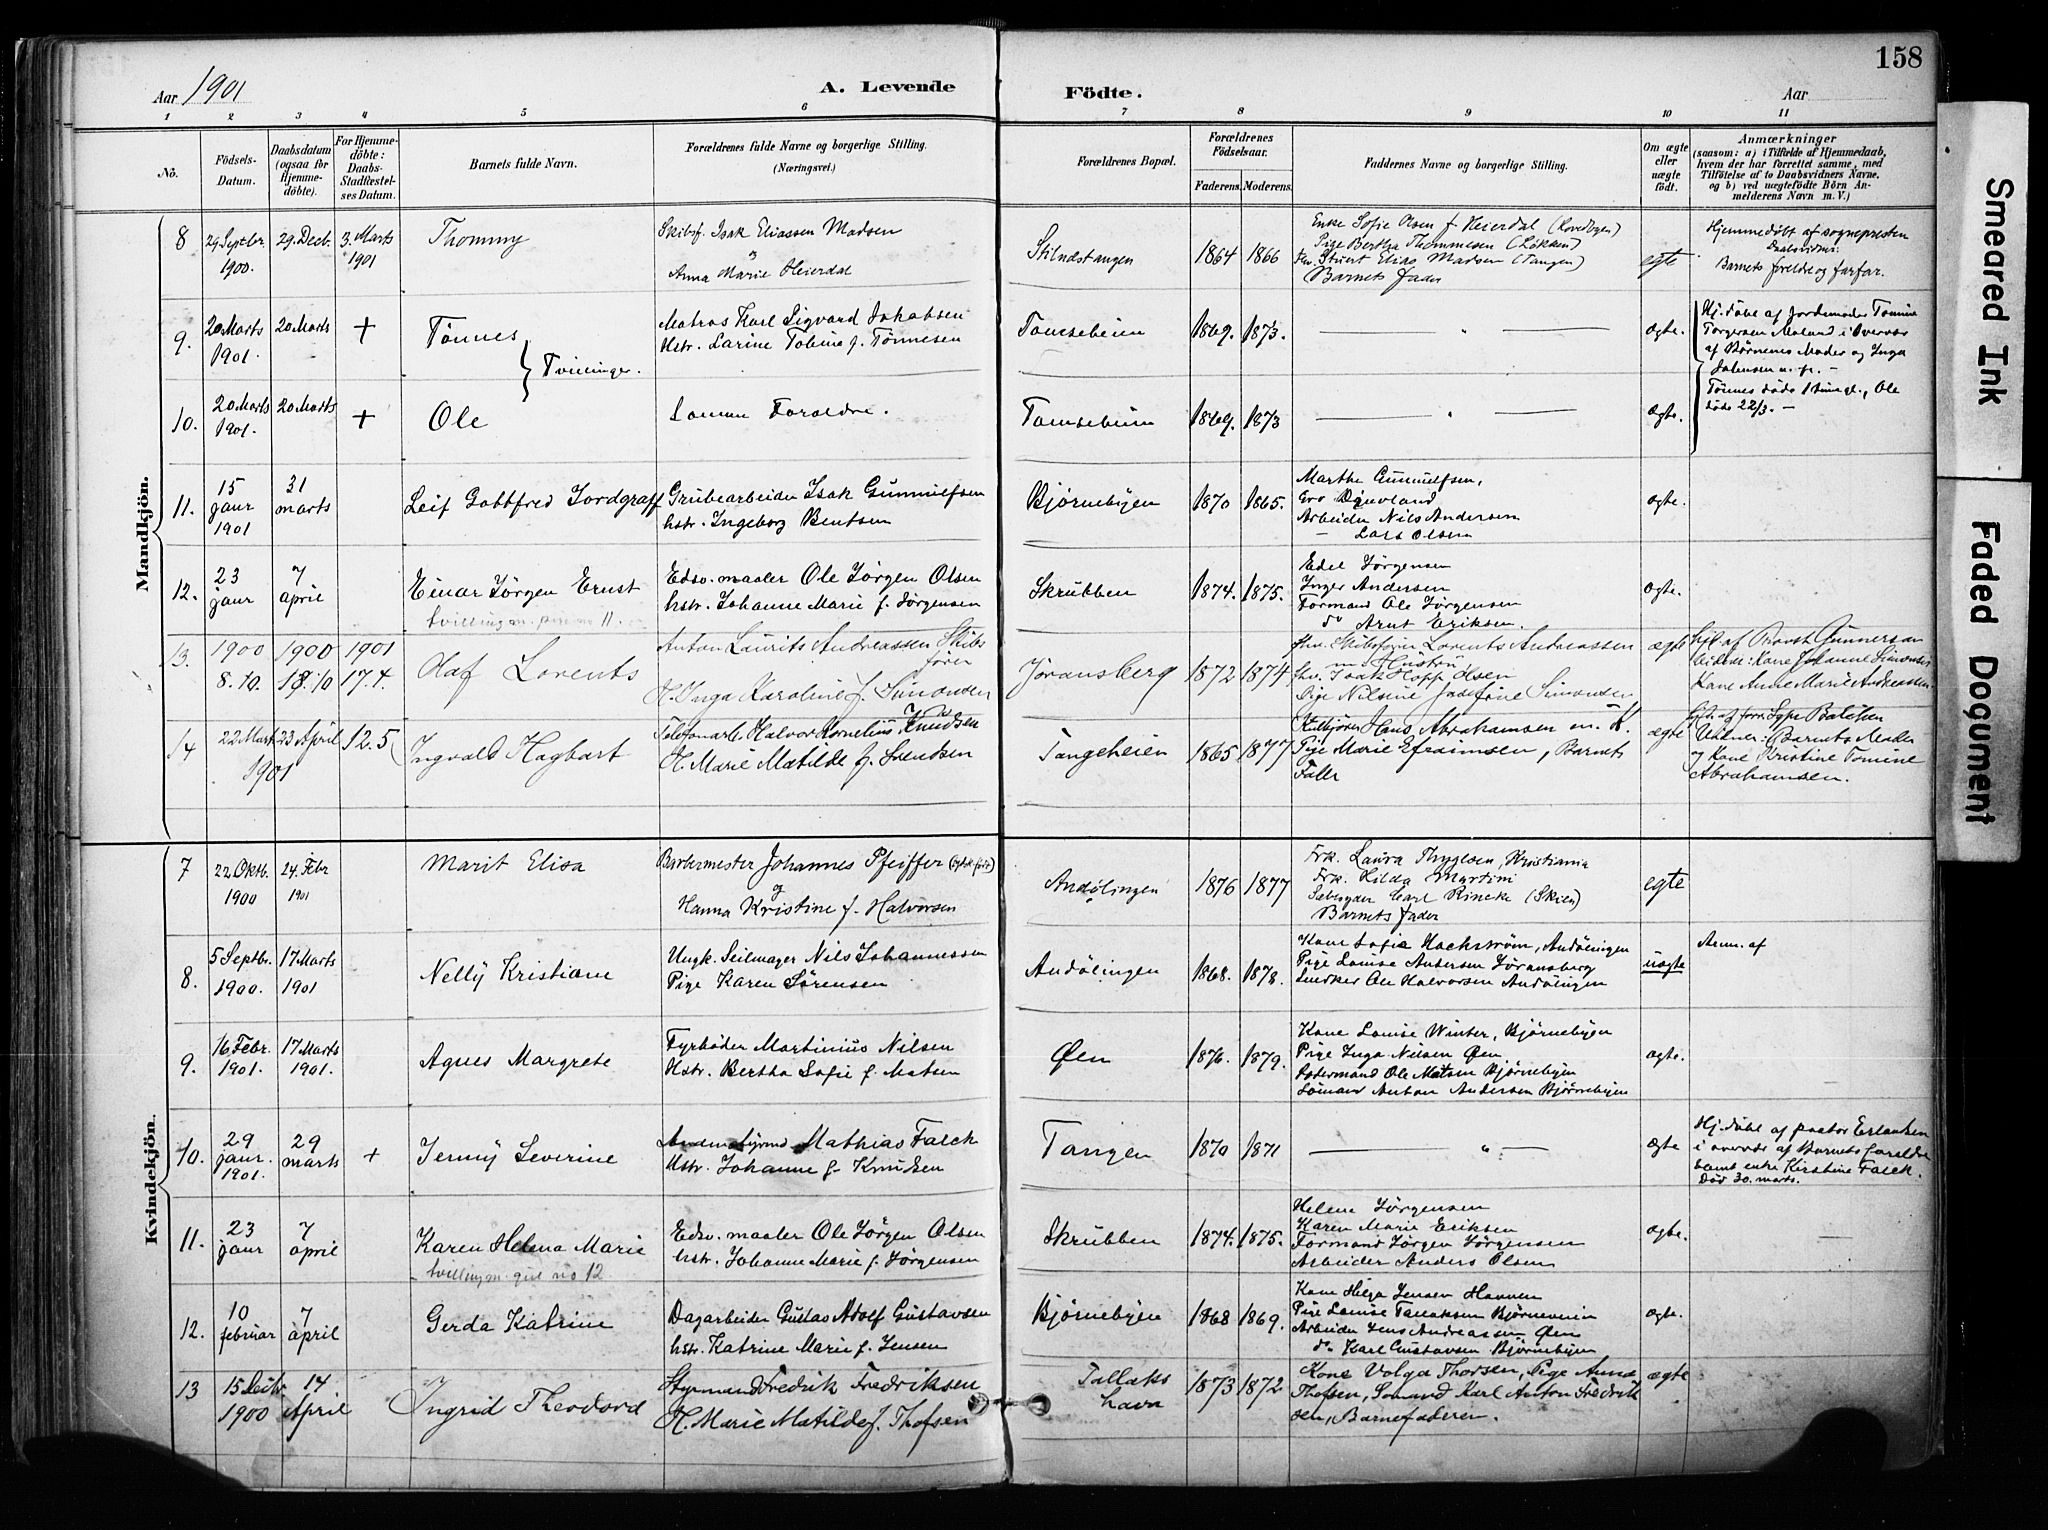 158
Aar 1901
A. Levende
Födte.
Aar
1 2 3 4 5 6 7 8 9 10 11
No.
Födsels-Datum.
Daabsdatum (ogsaa for Hjemme-döbte).
For Hjemme-döbte: Daabs-Stadfæstel-ses Datum.
Barnets fulde Navn.
Forældrenes fulde Navne og borgerlige Stilling.
(Næringsvei.)
Forældrenes Bopæl.
Forældrenes Födselsaar.
Faderens. Moderens.
Faddernes Navne og borgerlige Stilling.
Om ægte eller uægte födt.
Anmærkninger
(saasom: a) i Tilfælde af Hjemmedaab,
hvem der har forrettet samme, med
Tilföielse af to Daabsvidners Navne,
og b) ved uægtefödte Börn An-
melderens Navn m. V.)
Mandkjön.
8 29 Septbr. 1900. 29. Decb. 3. Marts 1901 Thommy
Skibsf. Isak Eliassen Madsen
og
Anna Marie Heierdal
Stilnæstangen 1864 1866
Enke Sofie Olsen f. Heierdal
Pige Bertha Thommesen (Løkken)
Stuert Elias Madsen (Tangen)
Barnets Fader
egte
Hjemmedöbt af sognepresten
Daabsvidner:
Barnets foreldre og farfar.
9. 20 Marts 1901. 20 Marts + Tönnes
Matros Karl Sigvard Jakobsen
Hstr. Larine Tobine f. Tönnesen
1869. 1873.
— " —
ægte.
Hj. döbt af Jordemoder Tomine
Torgersen Moland i Overvær
af Börnenes Moder og Inga
Tvillinger.
10. 20 Marts 1901. 20 Marts + Ole
Samme Foreldre.
1869. 1873
— " —
ægte.
Tönnes döde 1 time gl., Ole
döde 22/3. —
11. 15 janr 1901 31 marts Leif Gottfred Jordgraff
Grubearbeider Isak Gunnulfsen
hstr. Ingeborg Bentsen
Bjørnebyen 1870 1865.
Marthe Gunnulfsen,
Gro Dynevland
Arbeider Nils Andersen
— Lars Olsen
ægte.
12. 23 janr 7 april Einar Jörgen Ernst
tvilling m. pige no 11.
Edsv. maaler Ole Jörgen Olsen
hstr. Johanne Marie f. Jörgensen
Skrubben 1874. 1875.
Edel Jörgensen
Inger Andersen
Formand Ole Jörgensen
do Arnt Eriksen.
ægte.
13. 1900 8.10. 1900 18.10 1901 17.4. Olaf Lorents
Anton Laurits Andreassen Skibs
fører
H. Inga Karoline f. Simonsen
Jøransberg 1872 1874
Skibsfører Lorents Andreassen
m. Hustru
Isak Hopp Olsen
Pige Nilsine Josefine Simonsen
ægte
Hjd. af Provst Gunnersen
Vidner: Kone Johanne Simonsen
Kone Anne Marie Andreassen
14 22 Mart 1901 23 April 12.5 Ingvald Hagbart
Telefonarb. Halvor Kornelius Knudsen
H. Marie Matilde f. Svendsen
Tangeheien 1865 1877
Hans Abrahamsen m. K.
Pige Marie Efraimsen, Barnets
Fader
ægte
Hjd. af
Vidner: Barnets Moder
og Kone Kristine Tomine
Abrahamsen.
Kvindekjön.
7 22. Oktb. 1900 24. Febr 1901 Marit Elisa
Barbermester Johannes Pfeiffer
og
Hanna Kristine f. Halvorsen
Andölingen 1876 1877
Frk. Laura Thygesen, Kristiania
Frk. Lilda Martini
Sæbesyder Carl Rincke (Skien)
Barnets Fader
egte
8. 5 Septbr. 1900. 17 Marts 1901 Nelly Kristiane
Ungk. Seilmager Nils Johannessen
Pige Karen Sörensen
Andölingen 1868. 1878.
Kone Sofie Hackström, Andölingen
Pige Louise Andersen Jöransberg
Snedker Ole Halvorsen Andölingen
uægte
Anm. af
9. 16 Febr. 1901. 17 Marts 1901. Agnes Margrete
Fyrböder Martinius Nilsen
Hstr. Bertha Sofie f. Matsen
Øen 1876. 1879.
Kone Louise Winter, Bjørnebyen
Pige Inga Nilsen Øen
Ole Matsen Bjørnebyen
Sömand Anton Andersen Bjørnebyen
ægte.
—
10. 29 janr. 1901. 29 marts + Jenny Severine
Mathias Falck
Hstr. Johanne f. Knudsen
Tangen 1870 1871
— " —
ægte
Hj. döbt af pastor Erlandsen
i overvær af Barnets foreldre
samt enke Kirstine Falck.
Död 30. marts.
11. 23 janr 7 april Karen Helena Marie
tvilling m. gut no 12
Edsv. maaler Ole Jörgen Olsen
hstr. Johanne Marie f. Jörgensen
Skrubben 1874. 1875.
Helene Jörgensen
Karen Marie Eriksen
Formand Jörgen Jörgensen
Arbeider Anders Olsen
ægte.
—
12. 10 februar 7 april Gerda Katrine
Dagarbeider Gustav Adolf Gustavsen
hstr. Katrine Marie f. Jensen
Bjørnebyen 1868 1869.
Kone Helga Jensen Havnen
Pige Louise Tallaksen Bjørneveien
Arbeider Jens Andreassen Øen
do Karl Gustavsen Bjørnebyen
ægte.
13 15 Decbr 1900 14 April Ingrid Theodora
Styrmand Fredrik Fredriksen
H. Marie Matilde f. Thofsen
Tallaks
havn 1873 1872
Kone Volga Thorsen, Pige Anna
Thofsen, Sömand Karl Anton Fredrik
sen, Barnefaderen.
ægte
Smeared Ink
Faded Document